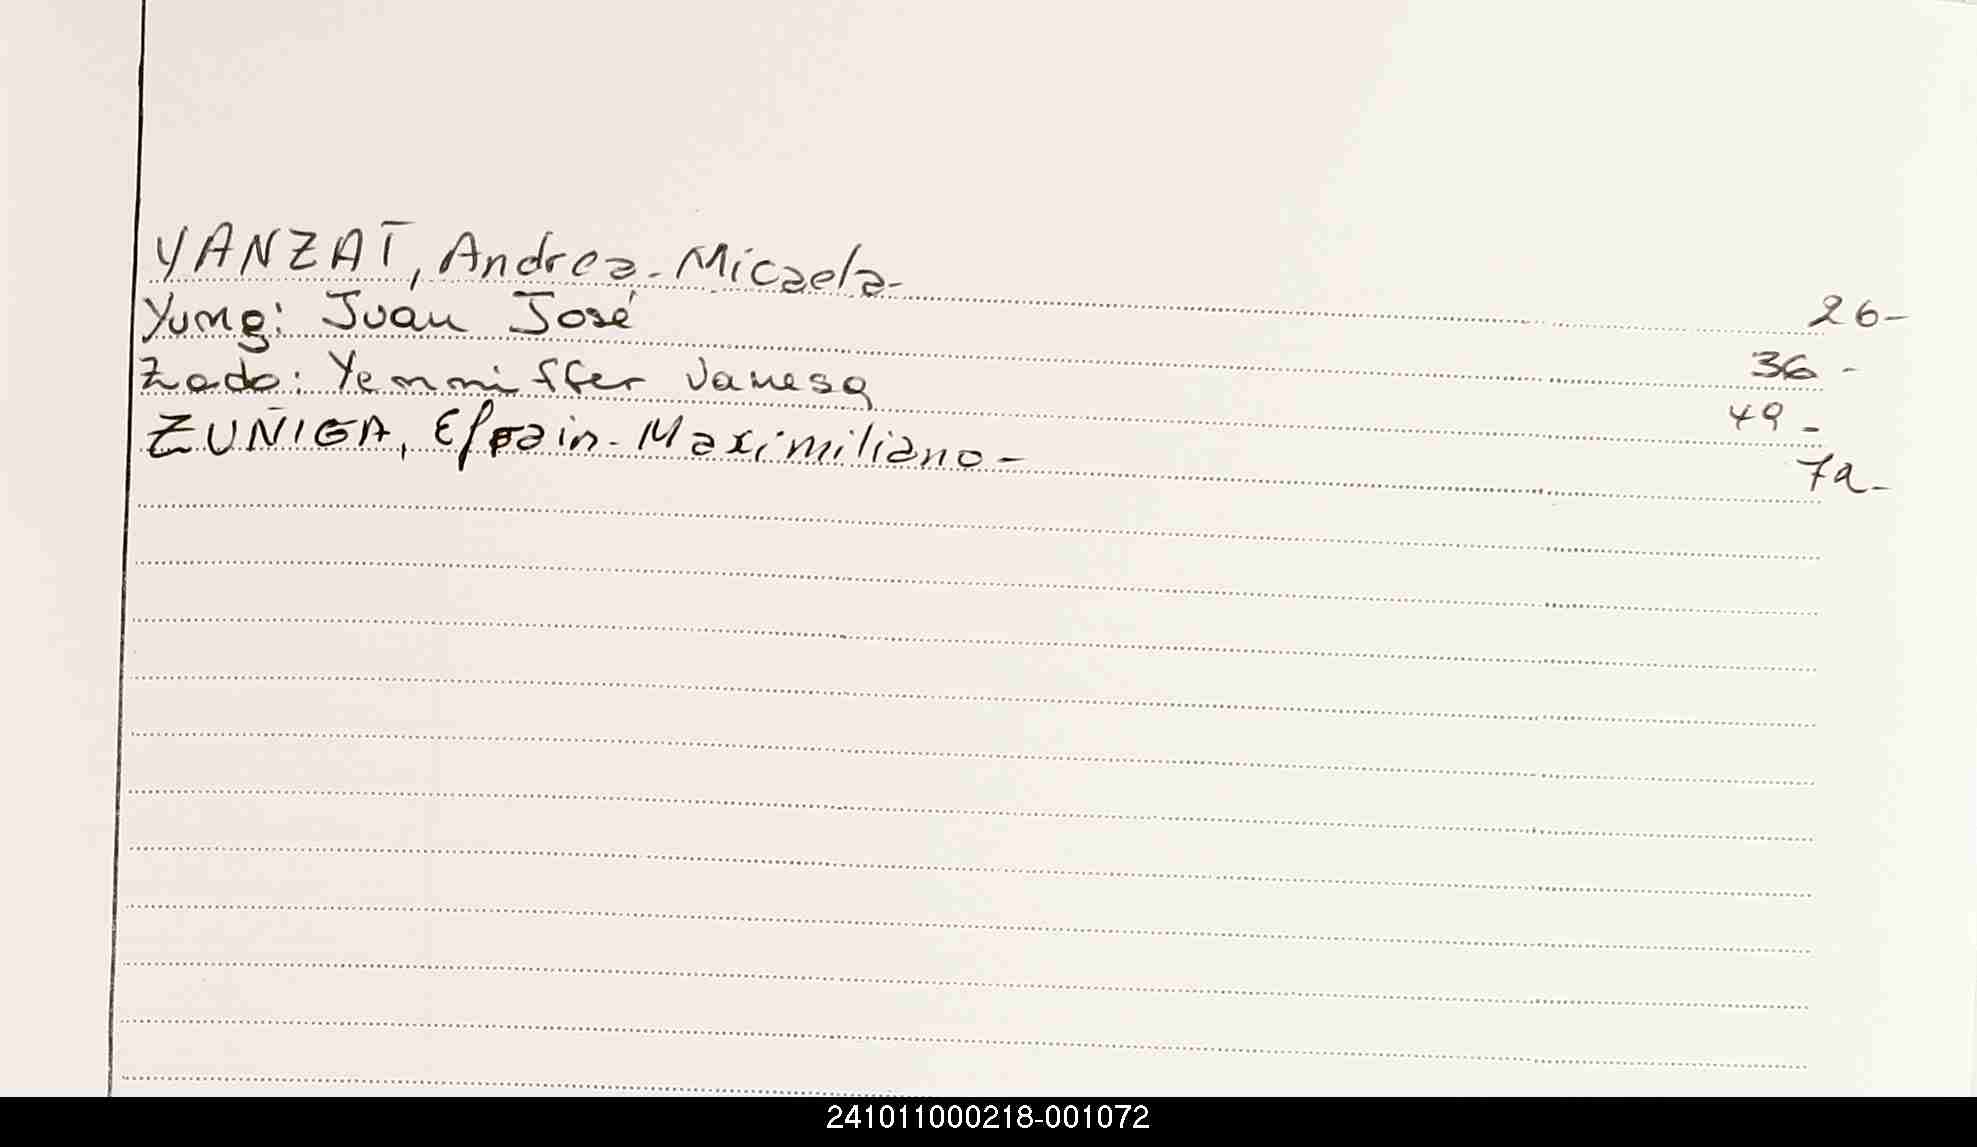 YANZAT, Andrea-Micaela- 26-
Yung: Juan José 36-
Zado: Yenniffer Vanesa 49-
ZUÑIGA, Efrain-Maximiliano- 72-
241011000218-001072